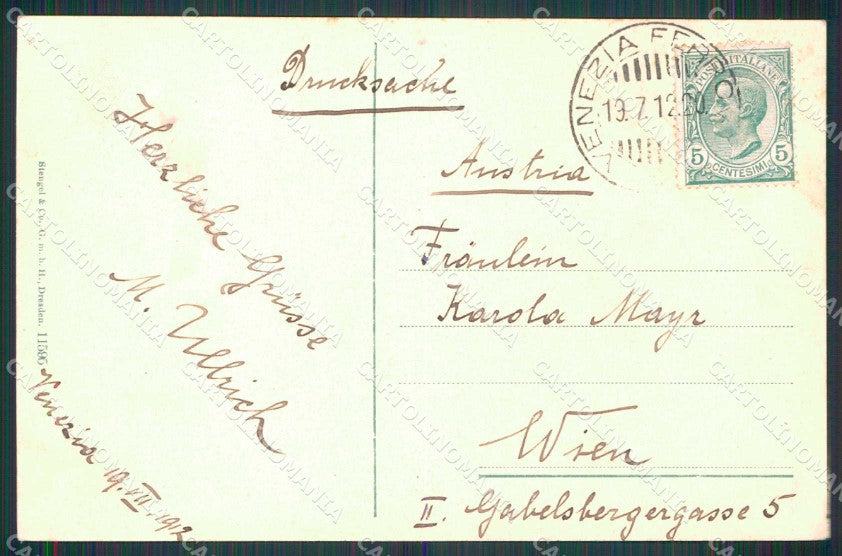 Drucksache
Herzliche Grüsse
M. Ullrich
Venezia 19. VII. 1912
Stengel & Co., G. m. b. H., Dresden. 11595
VENEZIA FERRO
19.7.12.20
POSTE ITALIANE
5 5
CENTESIMI
Austria
Fräulein
Karola Mayr
Wien
II. Gabelsbergergasse 5
CARTOLINOMANIA